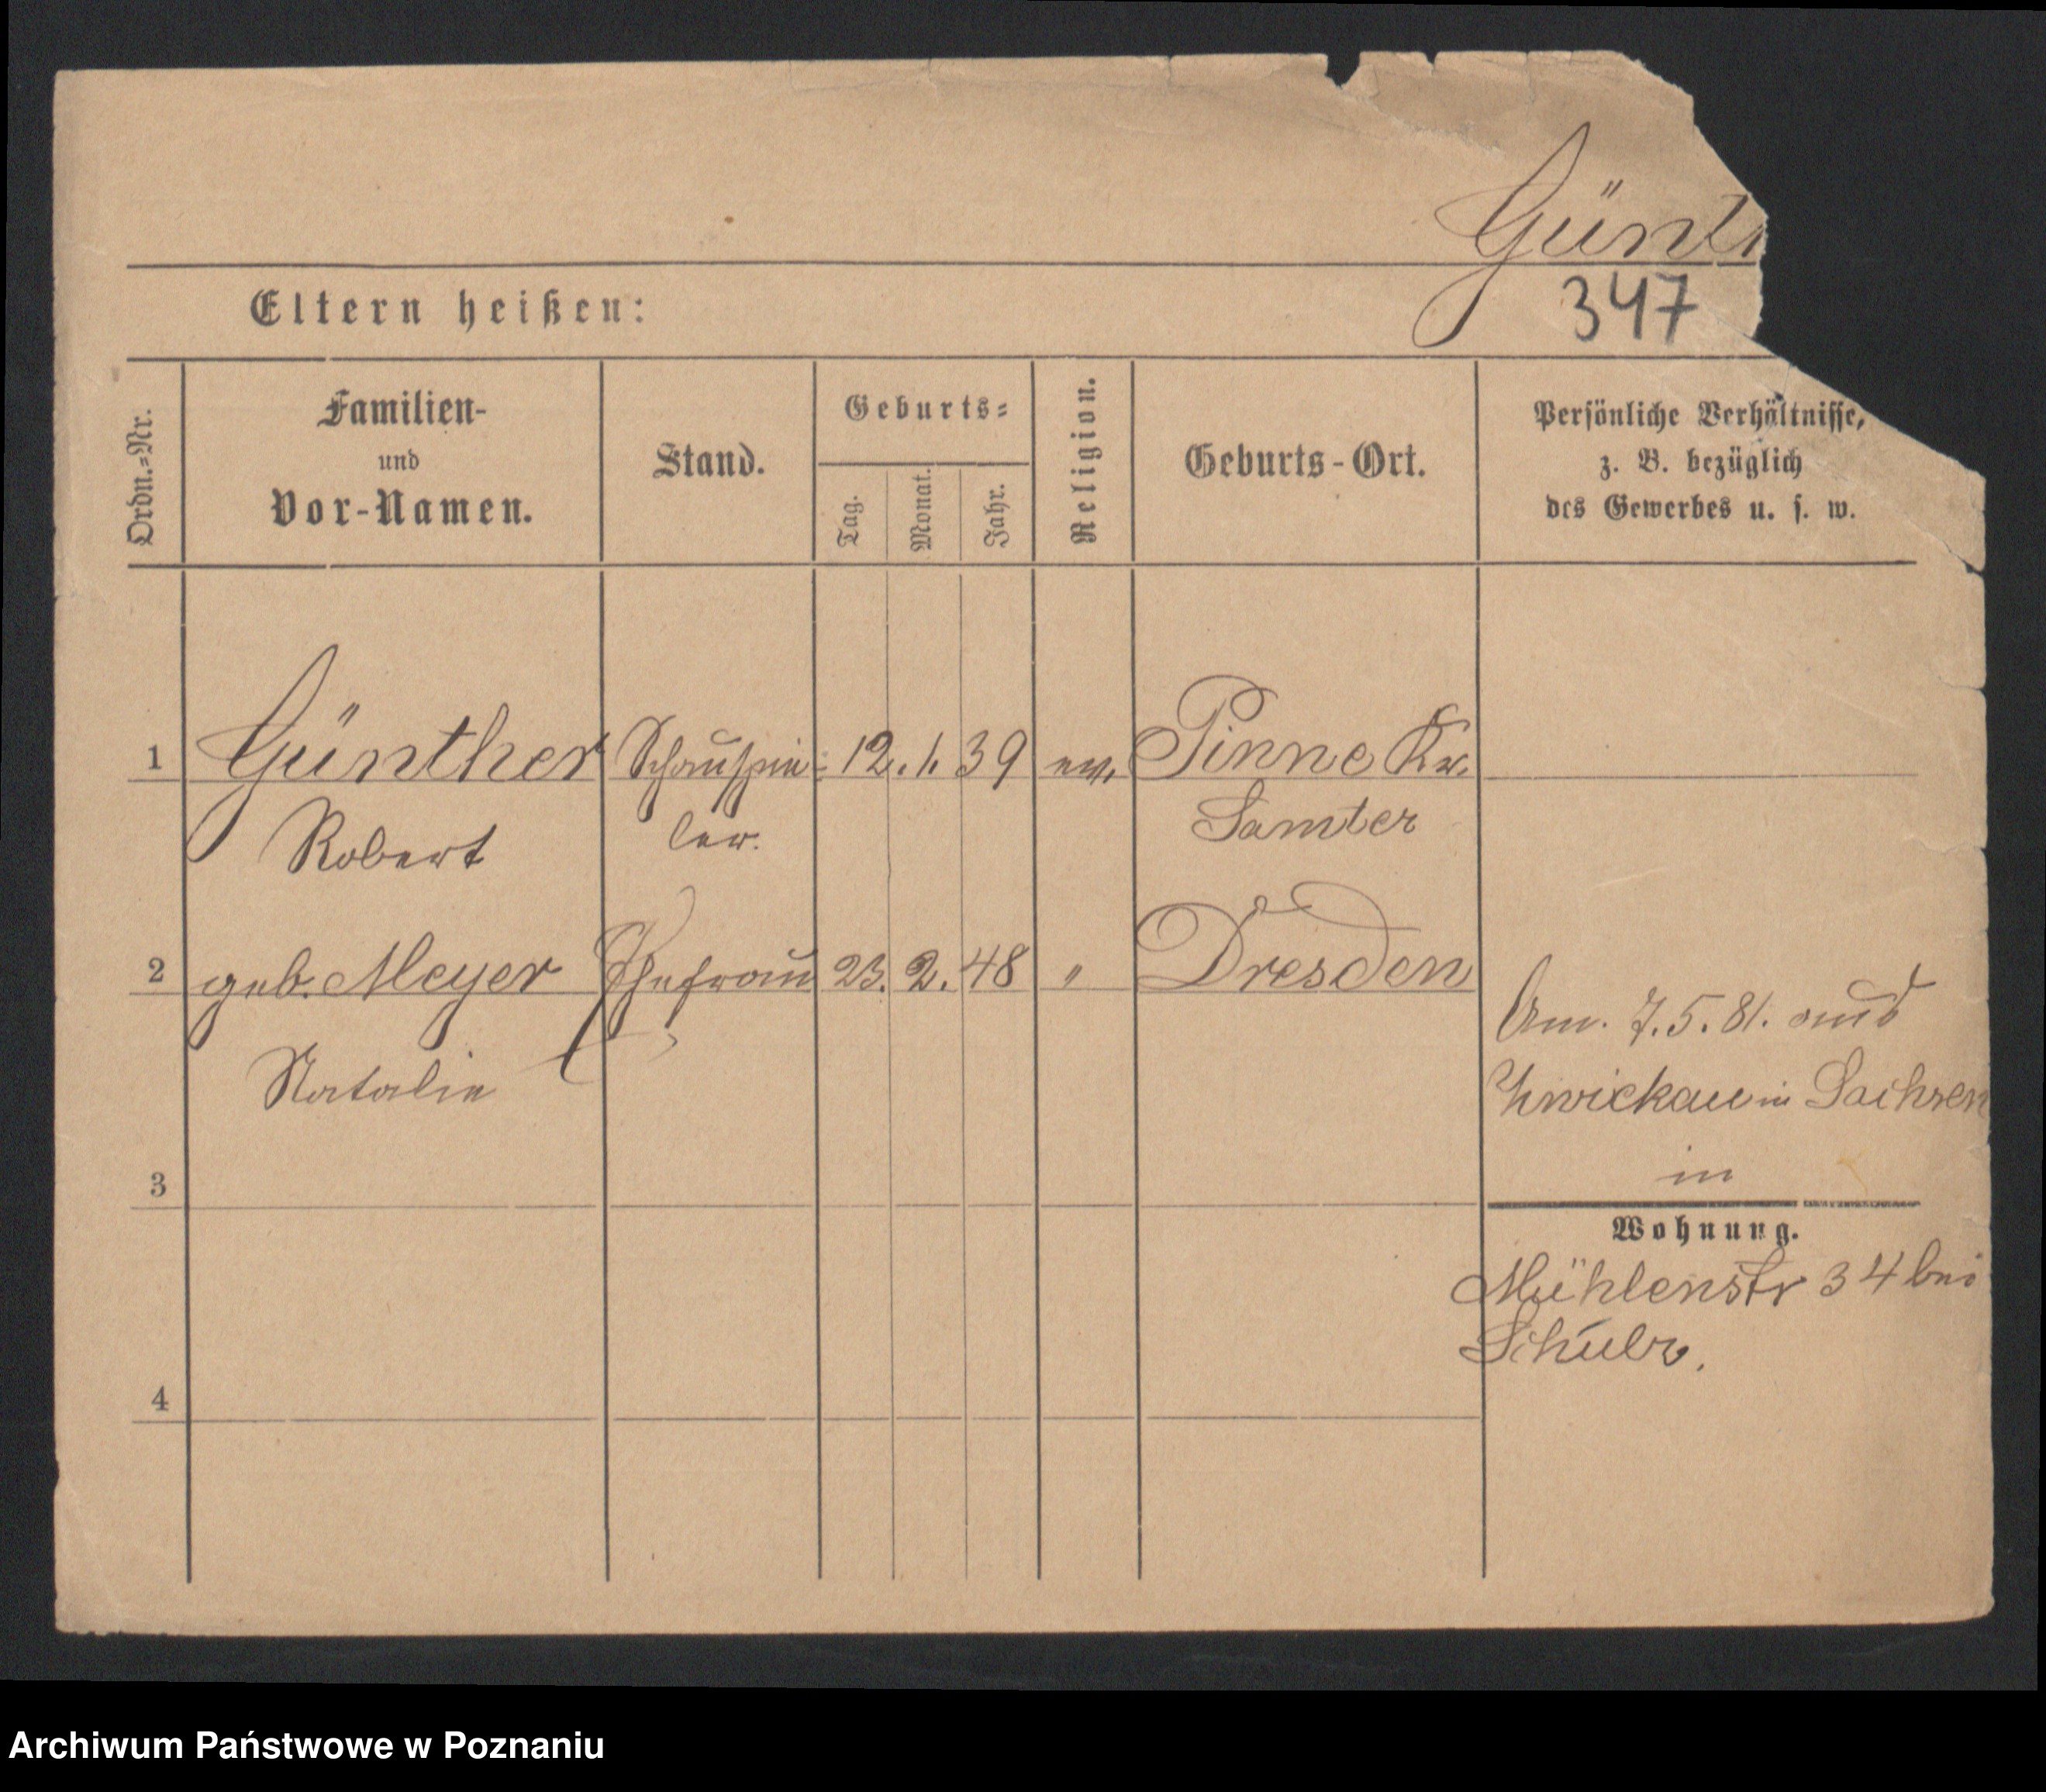 Günt
347
Eltern heißen:
Ordn.=Nr.
Familien-
und
Vor-Namen.
Stand.
Geburts=
Tag.
Monat.
Jahr.
Religion.
Geburts-Ort.
Persönliche Verhältnisse,
z. B. bezüglich
des Gewerbes u. s. w.
1 Günther Schauspie= 12. 1. 39 ev. Pinne Kr.
Robert ler. Samter
2 geb. Meyer Ehefrau 23. 2. 48 " Dresden
Natalie
Am. 7.5.81. aus
Zwickau in Sachsen
in
3
Wohnung.
Mühlenstr 34 bei
4
Archiwum Państwowe w Poznaniu